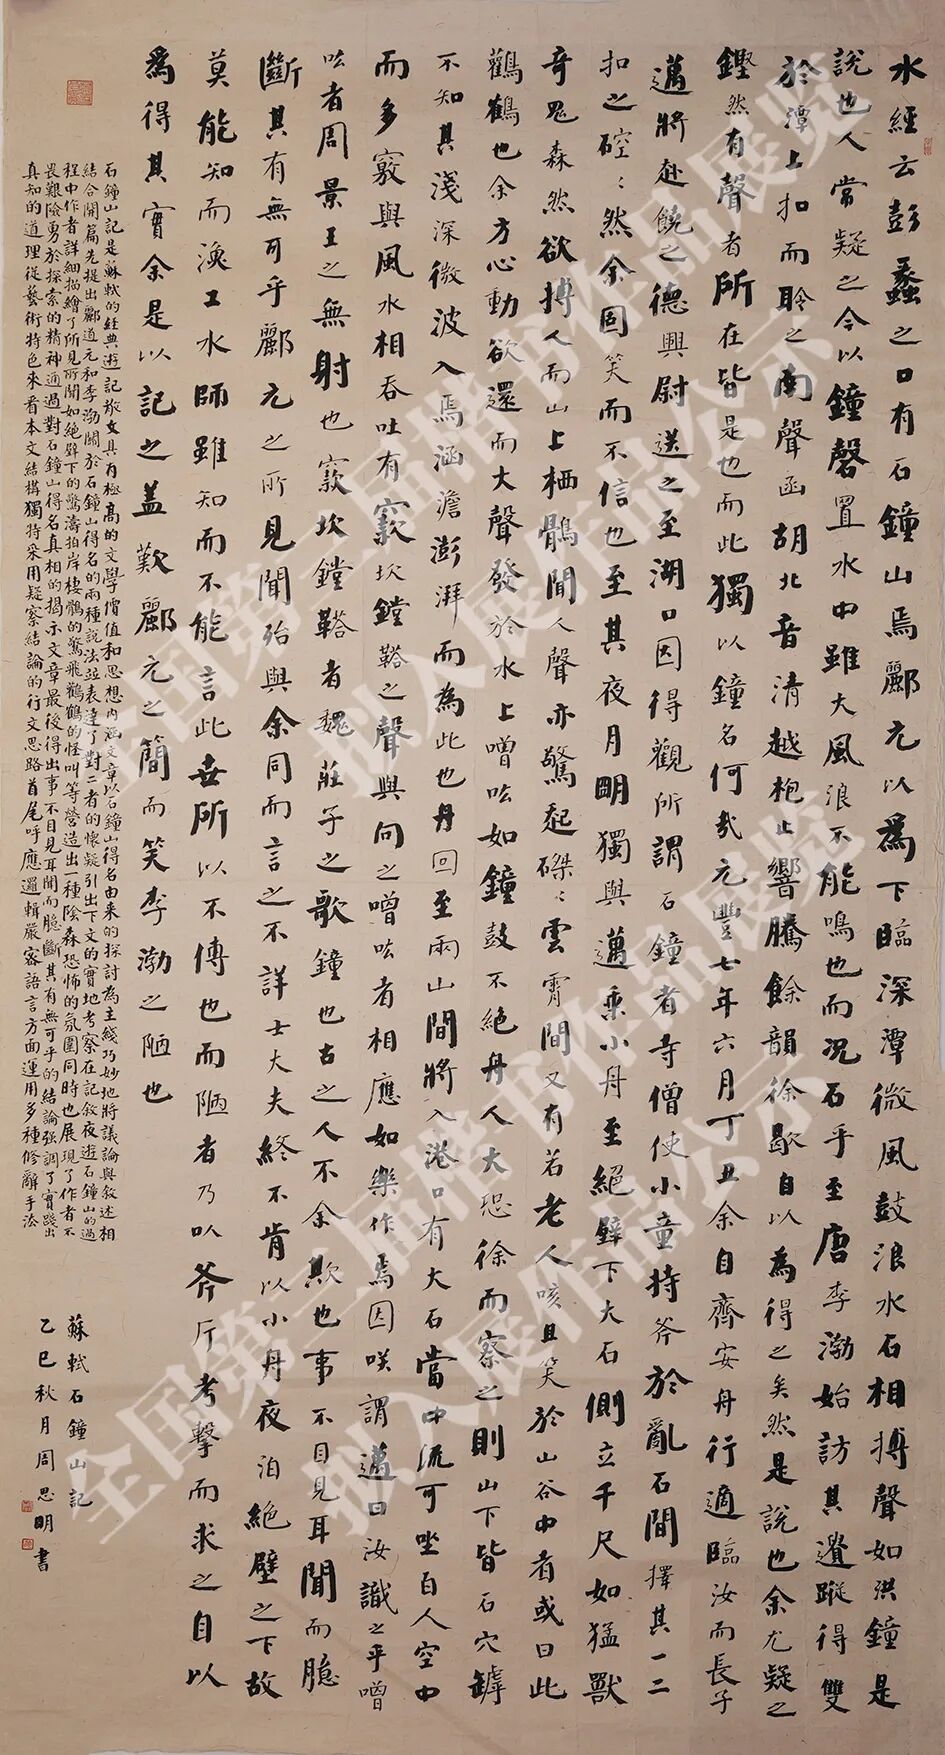 水經云彭蠡之口有石鐘山焉酈元以為下臨深潭微風鼓浪水石相搏聲如洪鐘是
說也人常疑之今以鐘磬置水中雖大風浪不能鳴也而況石乎至唐李渤始訪其遺蹤得雙
於潭上扣而聆之南聲函胡北音清越枹止響騰餘韻徐歇自以為得之矣然是說也余尤疑之
鏗然有聲者所在皆是也而此獨以鐘名何哉元豐七年六月丁丑余自齊安舟行適臨汝而長子
邁將赴饒之德興尉送之至湖口因得觀所謂石鐘者寺僧使小童持斧於亂石間擇其一二
扣之硿〻然余固笑而不信也至其夜月明獨與邁乘小舟至絕壁下大石側立千尺如猛獸
奇鬼森然欲搏人而山上栖鶻聞人聲亦驚起磔〻雲霄間又有若老人咳且笑於山谷中者或曰此
鸛鶴也余方心動欲還而大聲發於水上噌吰如鐘鼓不絕舟人大恐徐而察之則山下皆石穴罅
不知其淺深微波入焉涵澹澎湃而為此也舟回至兩山間將入港口有大石當中流可坐百人空中
而多竅與風水相吞吐有窾坎鏜鞳之聲與向之噌吰者相應如樂作焉因咲謂邁曰汝識之乎噌
吰者周景王之無射也窾坎鏜鞳者魏莊子之歌鐘也古之人不余欺也事不目見耳聞而臆
斷其有無可乎酈元之所見聞殆與余同而言之不詳士大夫終不肯以小舟夜泊絕壁之下故
莫能知而漁工水師雖知而不能言此世所以不傳也而陋者乃以斧斤考擊而求之自以
為得其實余是以記之蓋歎酈元之簡而笑李渤之陋也
石鐘山記是蘇軾的經典遊記散文具有極高的文學價值和思想內涵文章以石鐘山得名由来的探討為主綫巧妙地將議論與敘述相
結合開篇先提出酈道元和李渤關於石鐘山得名的兩種說法並表達了對二者的懷疑引出下文的實地考察在記敘夜遊石鐘山的過
程中作者詳細描繪了所見所聞如絕壁下的驚濤拍岸棲鶻的驚飛鸛鶴的怪叫等營造出一種陰森恐怖的氛圍同時也展現了作者不
畏艱險勇於探索的精神通過對石鐘山得名真相的揭示文章最後得出事不目見耳聞而臆斷其有無可乎的結論强調了實踐出
真知的道理從藝術特色來看本文結構獨特采用疑察結論的行文思路首尾呼應邏輯嚴密語言方面運用多種修辭手法
蘇軾石鐘山記
乙巳秋月周思明書
全国第三届楷书作品展览
拟入展作品公示
全国第三届楷书作品展览
拟入展作品公示